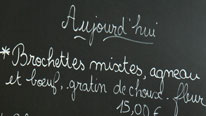 Aujourd'hui
*Brochettes mixtes, agneau
et bœuf,. gratin de choux. fleur
15,00€